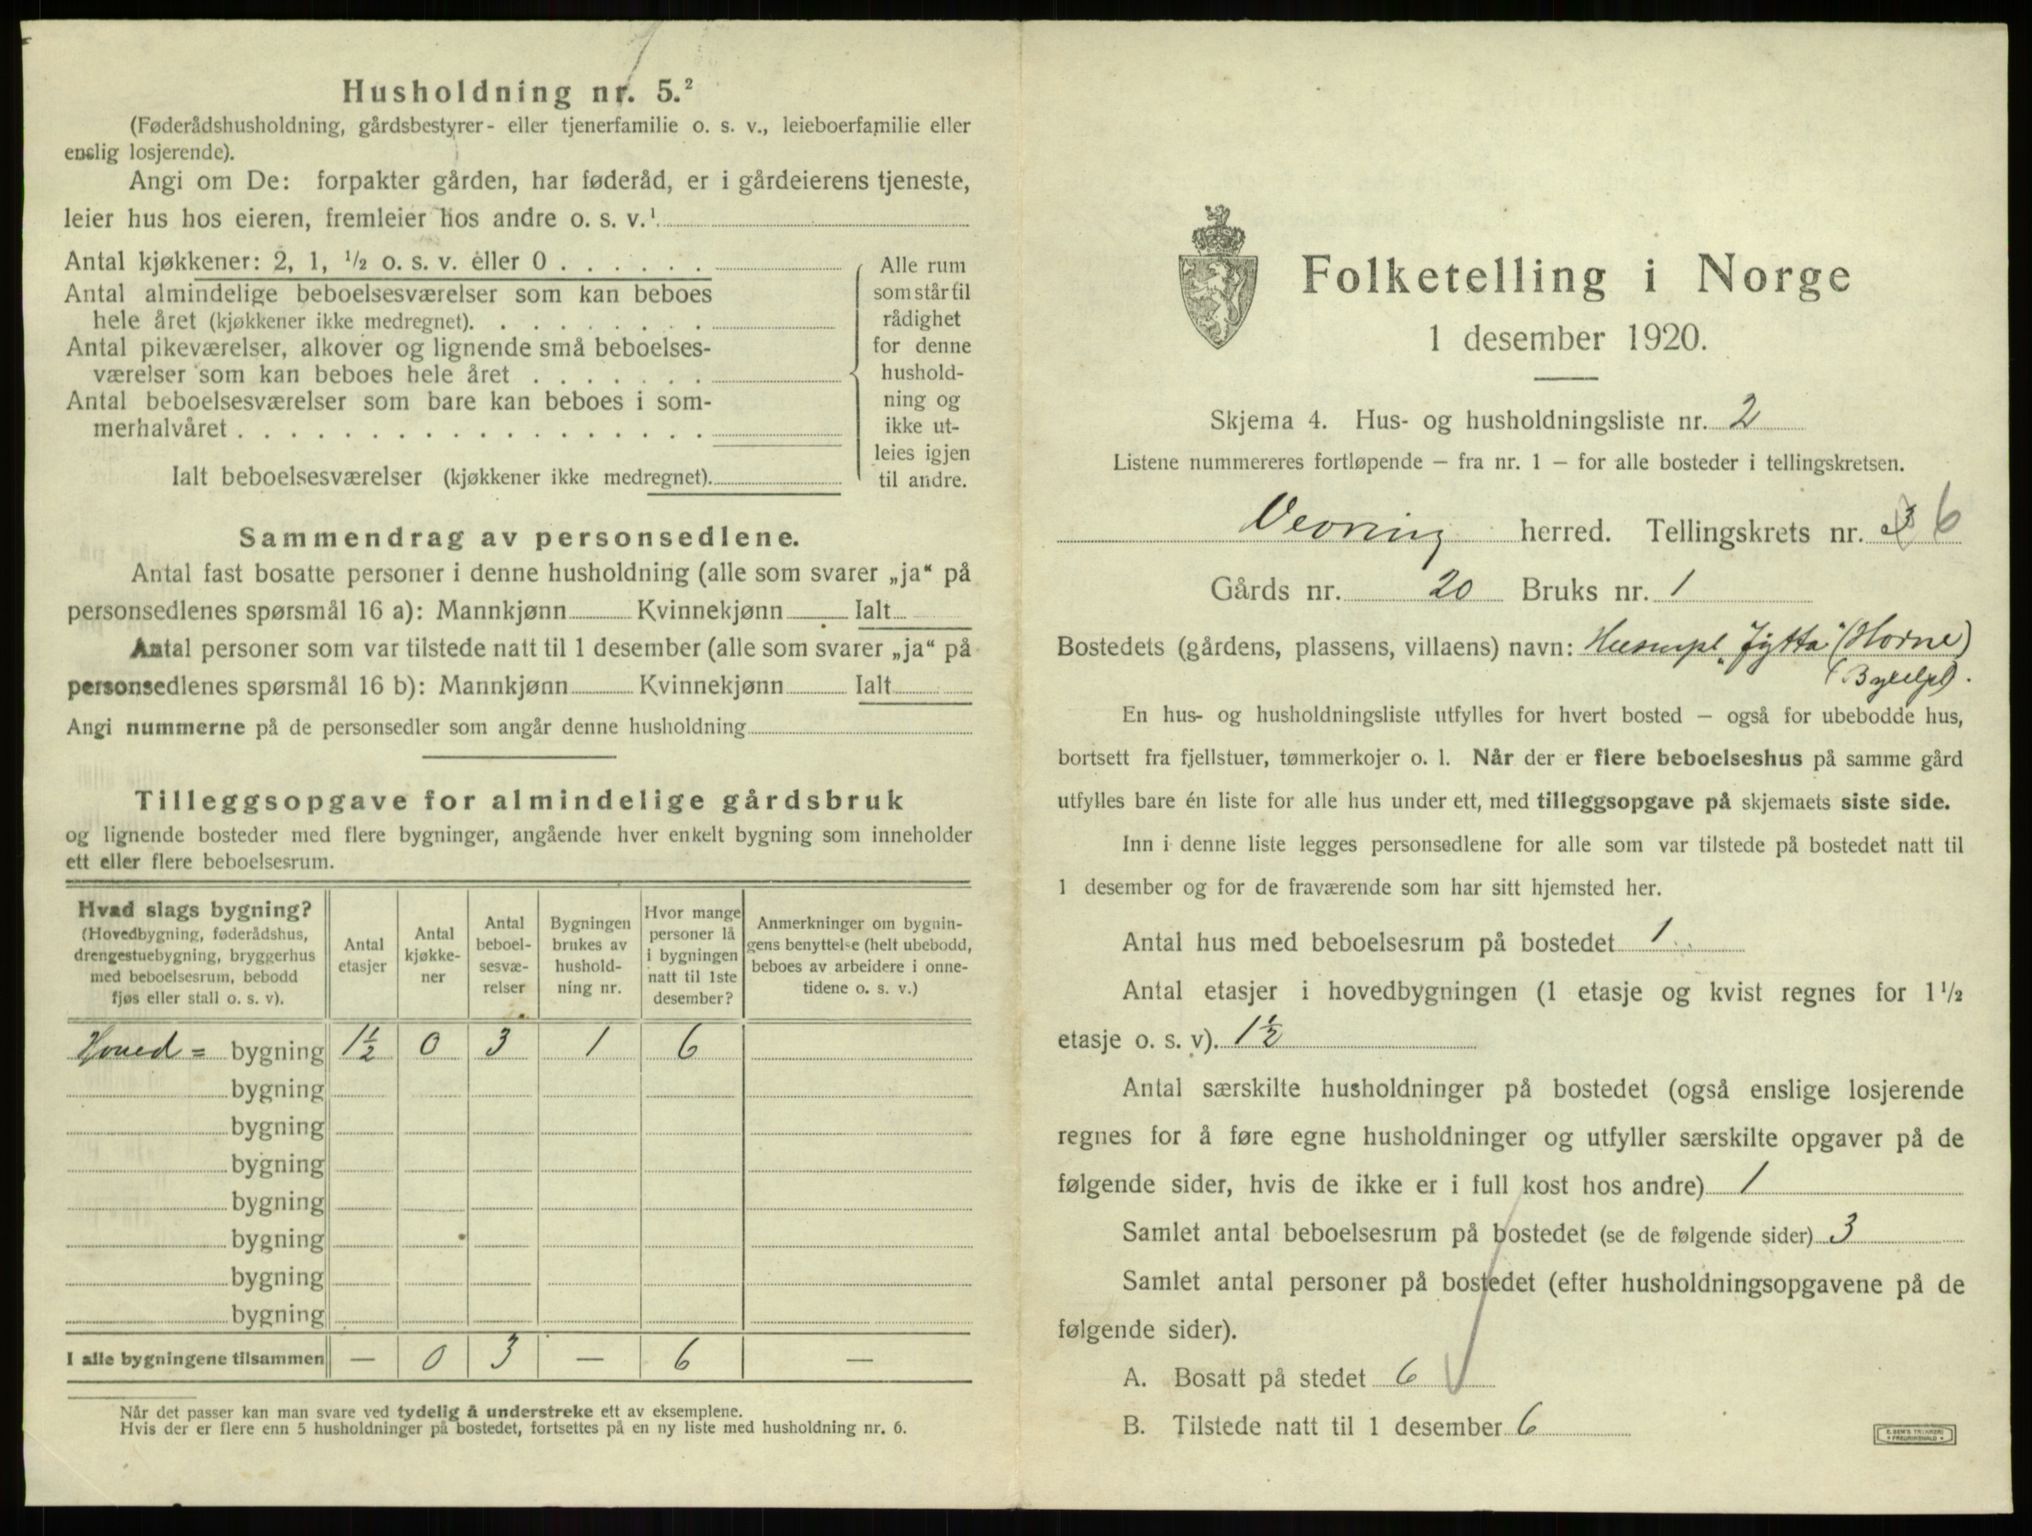 Husholdning nr. 5.²
(Føderådshusholdning, gårdsbestyrer- eller tjenerfamilie o. s. v., leieboerfamilie eller
enslig losjerende).
Angi om De: forpakter gården, har føderåd, er i gårdeierens tjeneste,
leier hus hos eieren, fremleier hos andre o. s. v.¹
Antal kjøkkener: 2, 1, ½ o. s. v. eller 0
Antal almindelige beboelsesværelser som kan beboes
hele året (kjøkkener ikke medregnet).
Antal pikeværelser, alkover og lignende små beboelses-
værelser som kan beboes hele året
Antal beboelsesværelser som bare kan beboes i som-
merhalvåret
Ialt beboelsesværelser (kjøkkener ikke medregnet).
Alle rum
som står til
rådighet
for denne
hushold-
ning og
ikke ut-
leies igjen
til andre.
Sammendrag av personsedlene.
Antal fast bosatte personer i denne husholdning (alle som svarer „ja“ på
personsedlenes spørsmål 16 a): Mannkjønn Kvinnekjønn Ialt
Antal personer som var tilstede natt til 1 desember (alle som svarer „ja“ på
personsedlenes spørsmål 16 b): Mannkjønn Kvinnekjønn Ialt
Angi nummerne på de personsedler som angår denne husholdning
Tilleggsopgave for almindelige gårdsbruk
og lignende bosteder med flere bygninger, angående hver enkelt bygning som inneholder
ett eller flere beboelsesrum.
Hvad slags bygning?
(Hovedbygning, føderådshus,
drengestuebygning, bryggerhus
med beboelsesrum, bebodd
fjøs eller stall o. s. v).
Antal
etasjer
Antal
kjøkke-
ner
Antal
beboel-
sesvæ-
relser
Bygningen
brukes av
hushold-
ning nr.
Hvor mange
personer lå
i bygningen
natt til 1ste
desember?
Anmerkninger om bygnin-
gens benyttelse (helt ubebodd,
beboes av arbeidere i onne-
tidene o. s. v.)
Hoved= bygning 1½ 0 3 1 6
bygning
bygning
bygning
bygning
bygning
bygning
bygning
I alle bygningene tilsammen — 0 3 — 6 —
Når det passer kan man svare ved tydelig å understreke ett av eksemplene.
Hvis der er flere enn 5 husholdninger på bostedet, fortsettes på en ny liste med husholdning nr. 6.
Folketelling i Norge
1 desember 1920.
Skjema 4. Hus- og husholdningsliste nr. 2
Listene nummereres fortløpende — fra nr. 1 — for alle bosteder i tellingskretsen.
Vevring herred. Tellingskrets nr. 3 6
Gårds nr. 20 Bruks nr. 1
Bostedets (gårdens, plassens, villaens) navn: Husmpl „Jytta“ (Horne)
En hus- og husholdningsliste utfylles for hvert bosted — også for ubebodde hus,
bortsett fra fjellstuer, tømmerkojer o. l. Når der er flere beboelseshus på samme gård
utfylles bare én liste for alle hus under ett, med tilleggsopgave på skjemaets siste side.
Inn i denne liste legges personsedlene for alle som var tilstede på bostedet natt til
1 desember og for de fraværende som har sitt hjemsted her.
Antal hus med beboelsesrum på bostedet 1
Antal etasjer i hovedbygningen (1 etasje og kvist regnes for 1½
etasje o. s. v). 1½
Antal særskilte husholdninger på bostedet (også enslige losjerende
regnes for å føre egne husholdninger og utfyller særskilte opgaver på de
følgende sider, hvis de ikke er i full kost hos andre) 1
Samlet antal beboelsesrum på bostedet (se de følgende sider) 3
Samlet antal personer på bostedet (efter husholdningsopgavene på de
følgende sider).
A. Bosatt på stedet 6
B. Tilstede natt til 1 desember 6